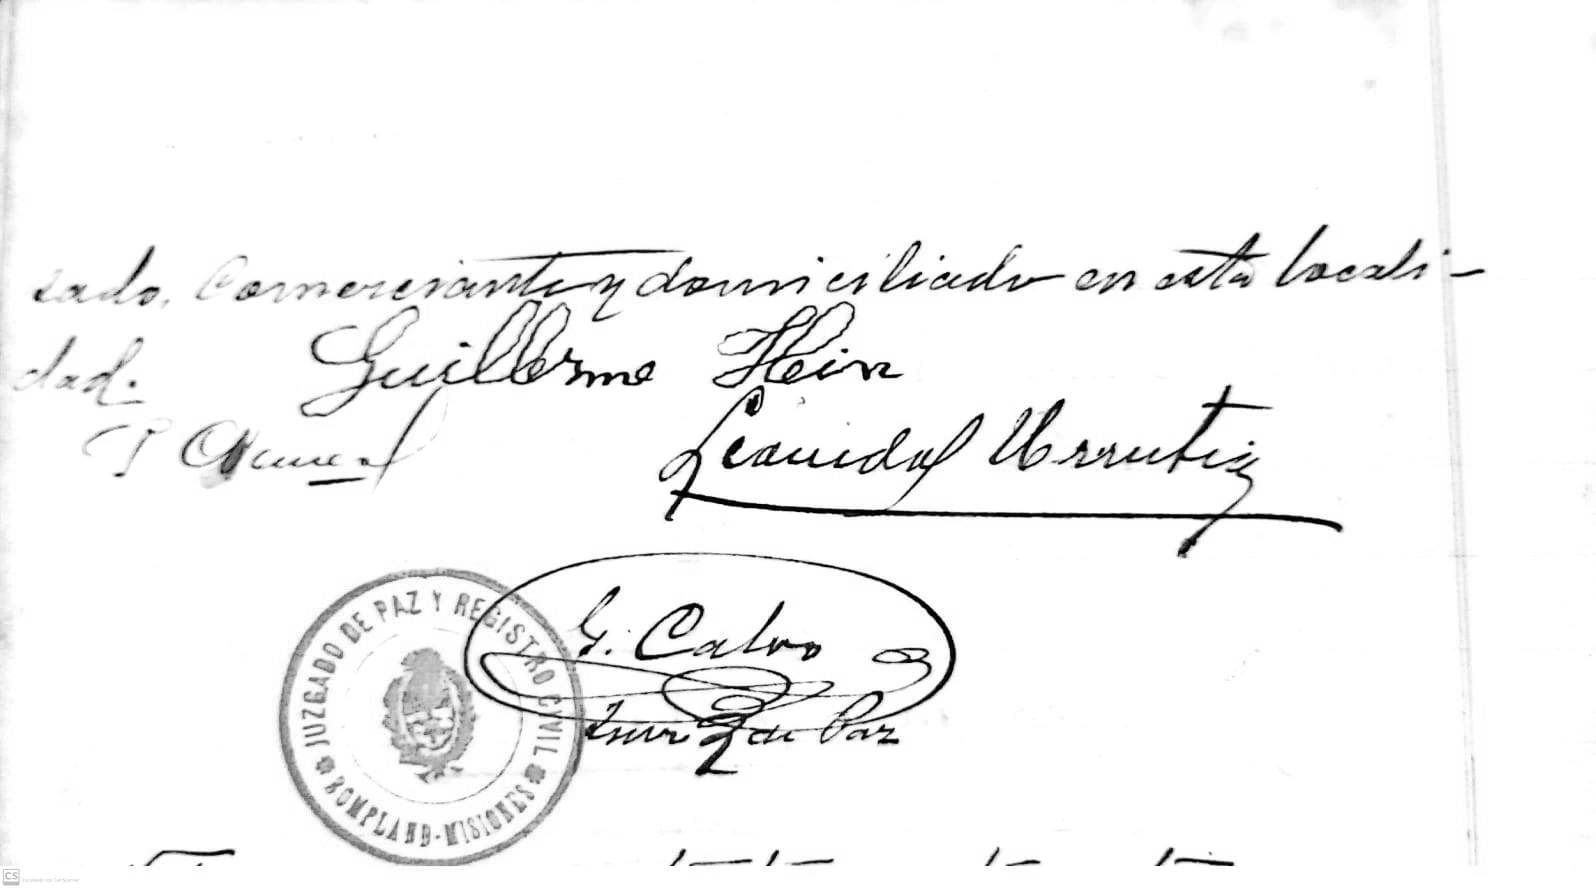 sado, Comerciante y domiciliado en esta locali-
dad.
Guillermo Hein
Leonidas Urrutia
G. Calvo
Juez de Paz
JUZGADO DE PAZ Y REGISTRO CIVIL
BOMPLAND-MISIONES
CS